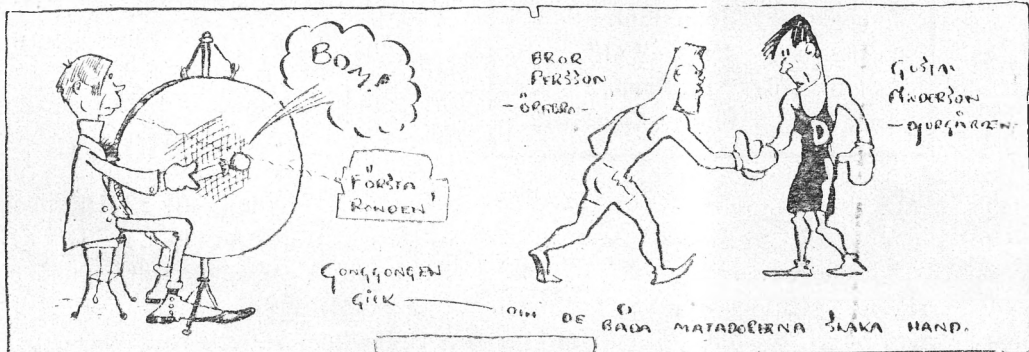 BOM!
FÖRSTA
RONDEN!
BROR
PERSSON
-ÖREBRO-
GUSTAV
ANDERSON
-DJURGÅRDEN-
D
GONGGONGEN
GICK
OCH DE BÅDA MATADORERNA SKAKA HAND.